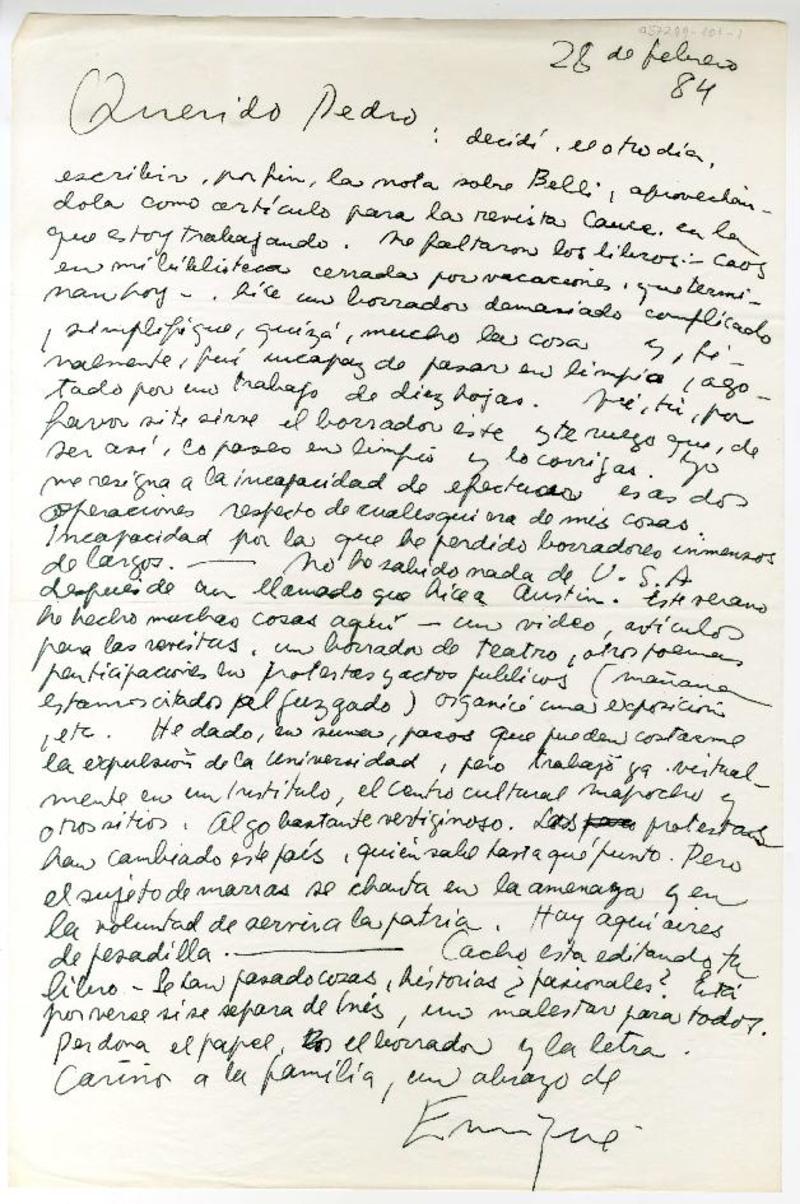 28 de febrero
84
Querido Pedro
: decidí, el otro día,
escribir, por fin, la nota sobre Belli, aprovechán-
dola como artículo para la revista Cauce, en la
que estoy trabajando. Me faltaron los libros - caos
en mi biblioteca cerrada por vacaciones, que termi-
nan hoy -. Hice un borrador demasiado complicado
, simplifiqué, quizá, mucho la cosa y, fi-
nalmente, fui incapaz de pasar en limpio, ago-
tado por un trabajo de diez hojas. Ve, tú, por
favor si te sirve el borrador este y te ruego que, de
ser así, lo pases en limpio y lo corrigas. Yo
me resigna a la incapacidad de efectuar esas dos
operaciones respecto de cualesquiera de mis cosas.
Incapacidad por la que he perdido borradores inmensos
de largos. — No he sabido nada de U.S.A
después de un llamado que hice a Austin. Este verano
he hecho muchas cosas aquí - un video, artículos
para las revistas, un borrador de teatro, otros poemas
participaciones en protestas y actos públicos (mañana
estamos citados al juzgado) organicé una exposición
, etc. He dado, en suma, pasos que pueden costarme
la expulsión de la Universidad, pero trabajo ya virtual-
mente en un Instituto, el Centro cultural Mapocho y
otros sitios. Algo bastante vertiginoso. Las protestas
han cambiado este país, quién sabe hasta qué punto. Pero
el sujeto de marras se chanta en la amenaza y en
la voluntad de servir a la patria. Hay aquí aires
de pesadilla. — Cacho esta editando tu
libro - Se han pasado cosas, historias ¿pasionales? Está
por verse si se separa de Inés, un malestar para todos.
Perdona el papel, el borrador y la letra.
Cariños a la familia, un abrazo de
Enrique